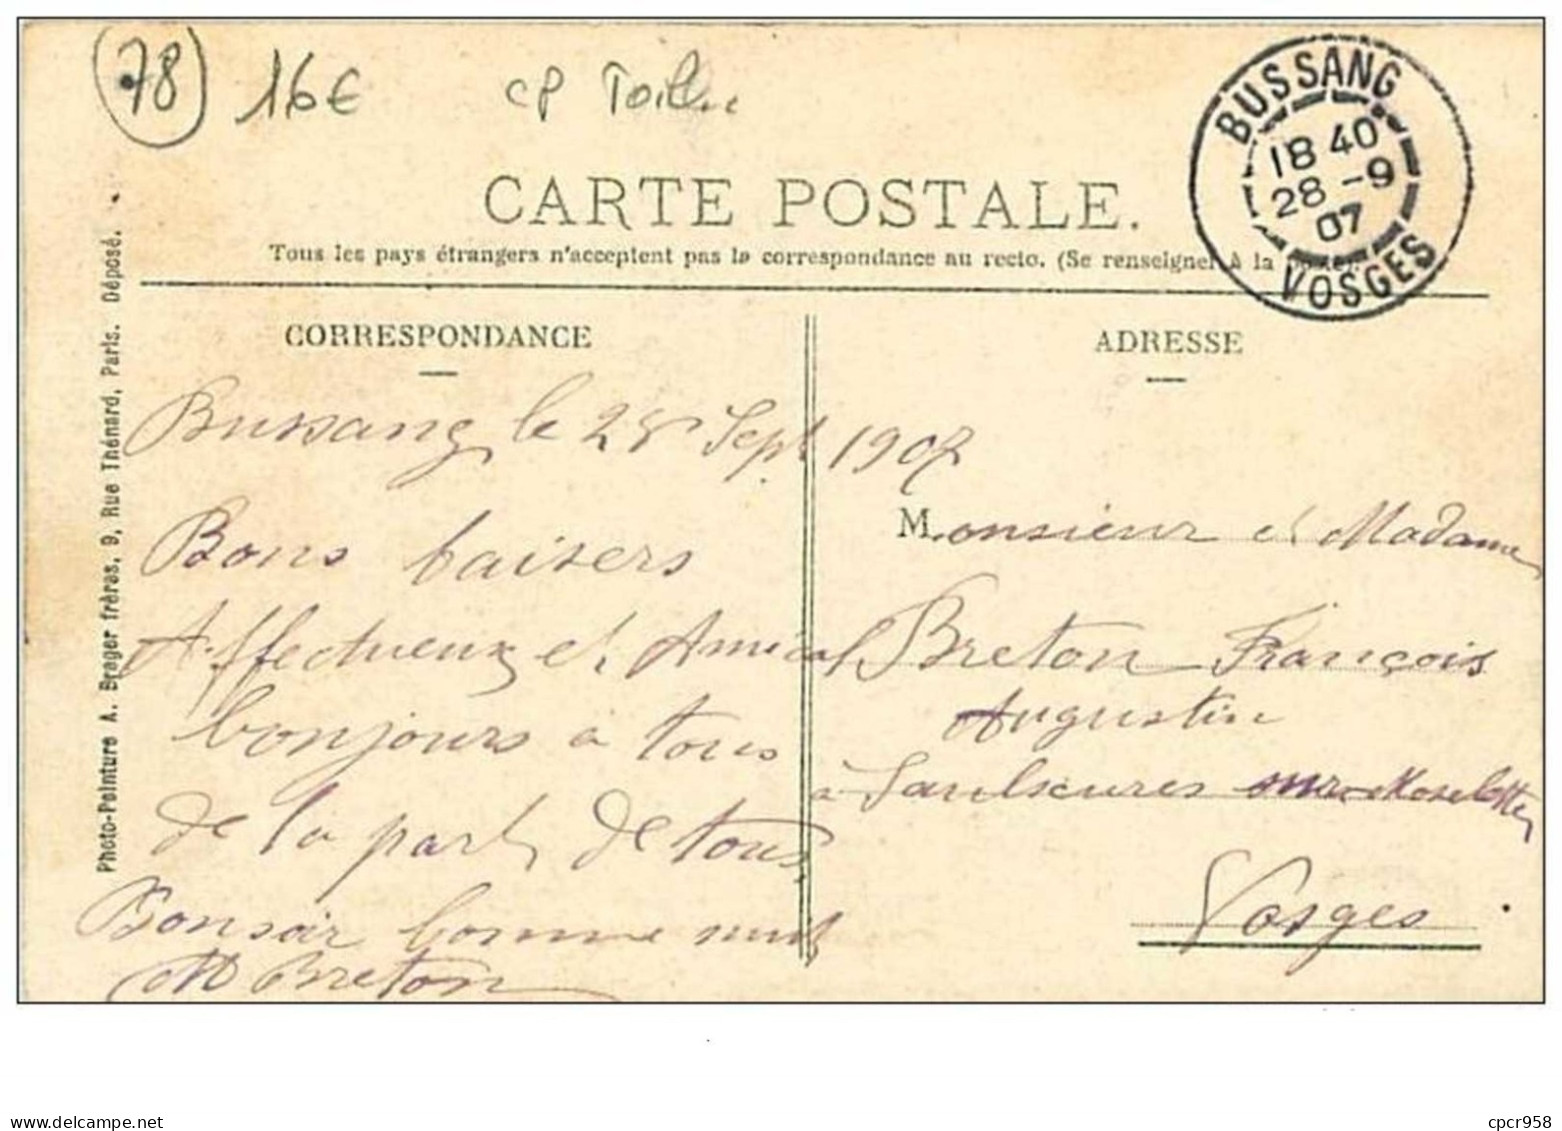 78 16€ CP Toilée
BUSSANG
18 40
28 -9
07
VOSGES
CARTE POSTALE.
Tous les pays étrangers n'acceptent pas la correspondance au recto. (Se renseigner à la
CORRESPONDANCE
Bussang le 28 Sept 1907
Bons baisers
Affectueux et Amical
bonjours a tous
de la part de tous,
Bonsoir bonne nuit
M Breton
ADRESSE
Monsieur et Madame
Breton François
Augustin
a Saulxures sur Moselotte
Vosges
Photo-Peinture A. Brager frères, 9, Rue Thénard, Paris. Déposé.
delcampe.net
cpcr958